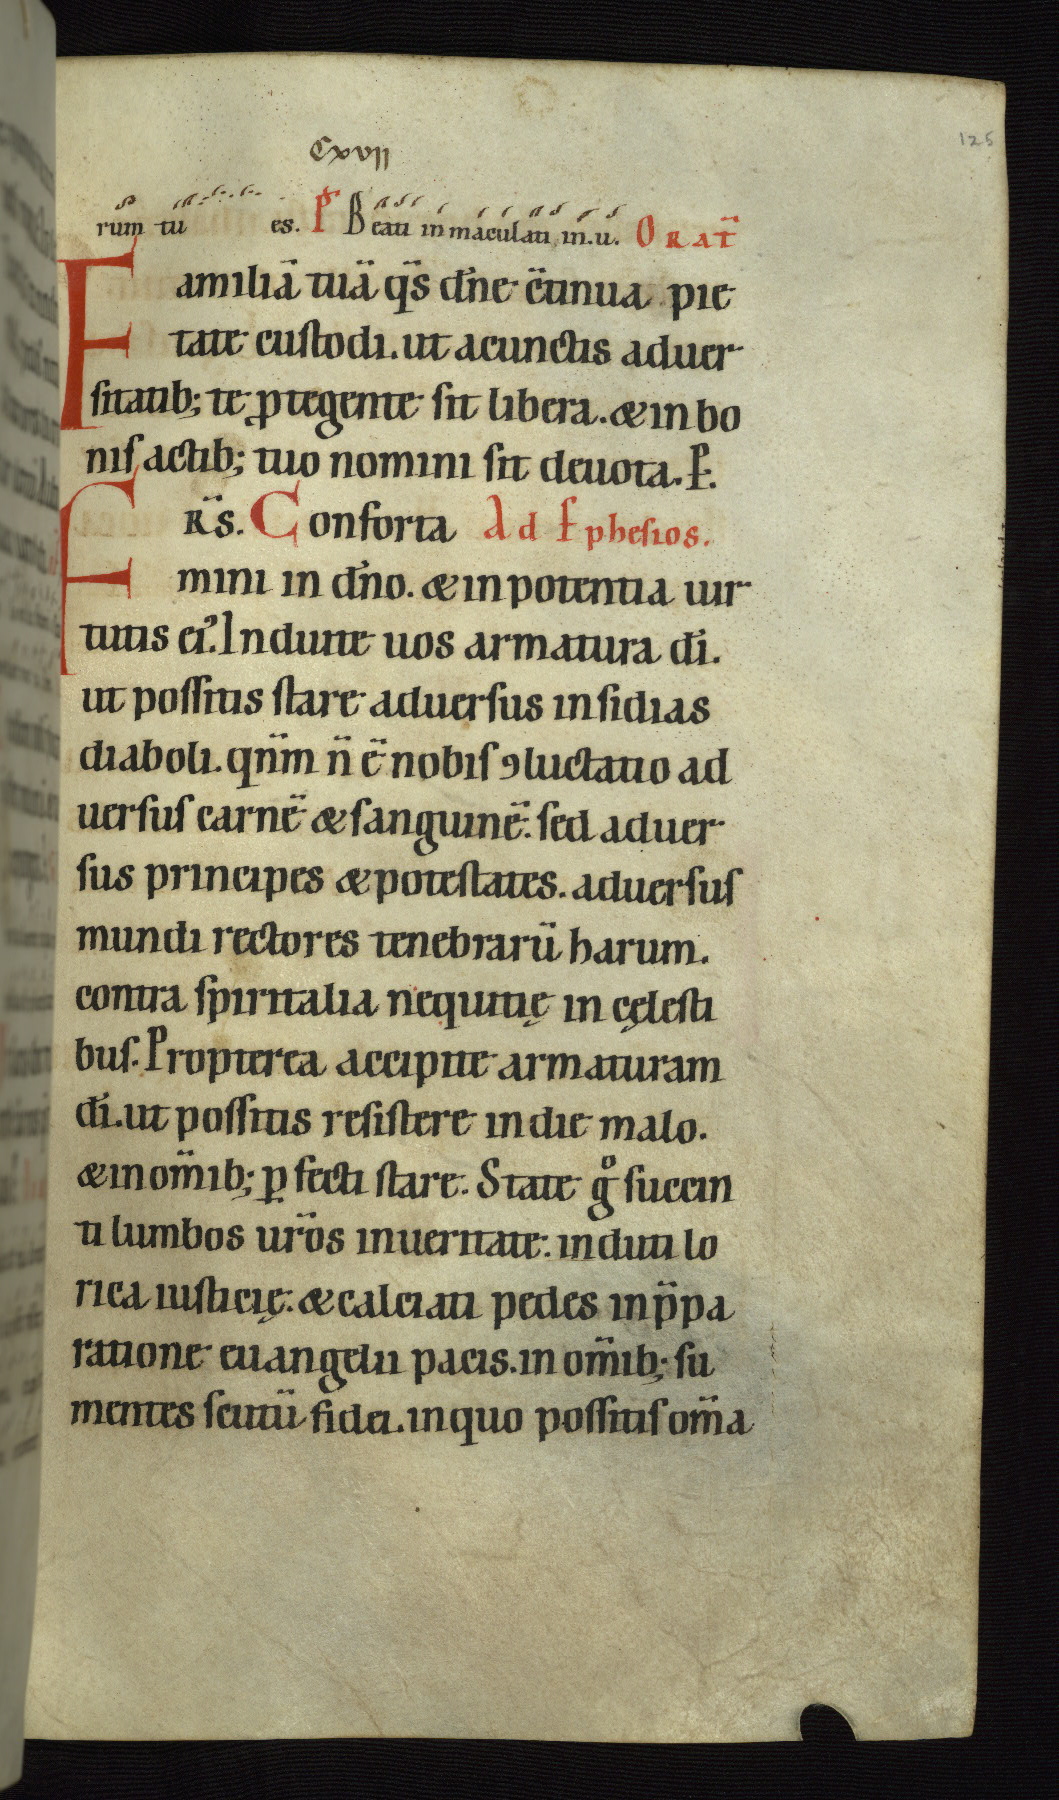 Cxvij
125
rum tu es. Ps Beati inmaculati in.u. Orat̄
Familiā tuā q̄s dn̄e c̄tinua pie
tate custodi. ut acunctis aduer
sitatib; te ꝓtegente sit libera. & in bo
nis actib; tuo nomini sit deuota. P.
FR̄s. Conforta Ad Ephesios.
mini in dn̄o. & in potentia uir
tutis ei᾽. Induite uos armatura dī.
ut possitis stare aduersus insidias
diaboli. qnm̄ n̄ ē nobis ꝯluctatio ad
uersus carnē & sanguinē. sed aduer
sus principes & potestates. aduersus
mundi rectores tenebrarū harum.
contra spiritalia nequitię in cęlesti
bus. Propterea accipite armaturam
dī. ut possitis resistere in die malo.
& in om̄ib; ꝑfecti stare. State gͦ succin
ti lumbos ur̄os in ueritate: induti lo
rica iusticię. & calciati pedes in p̄pa
ratione euangelii pacis. in om̄ib; su
mentes scutū fidei. in quo possitis om̄a